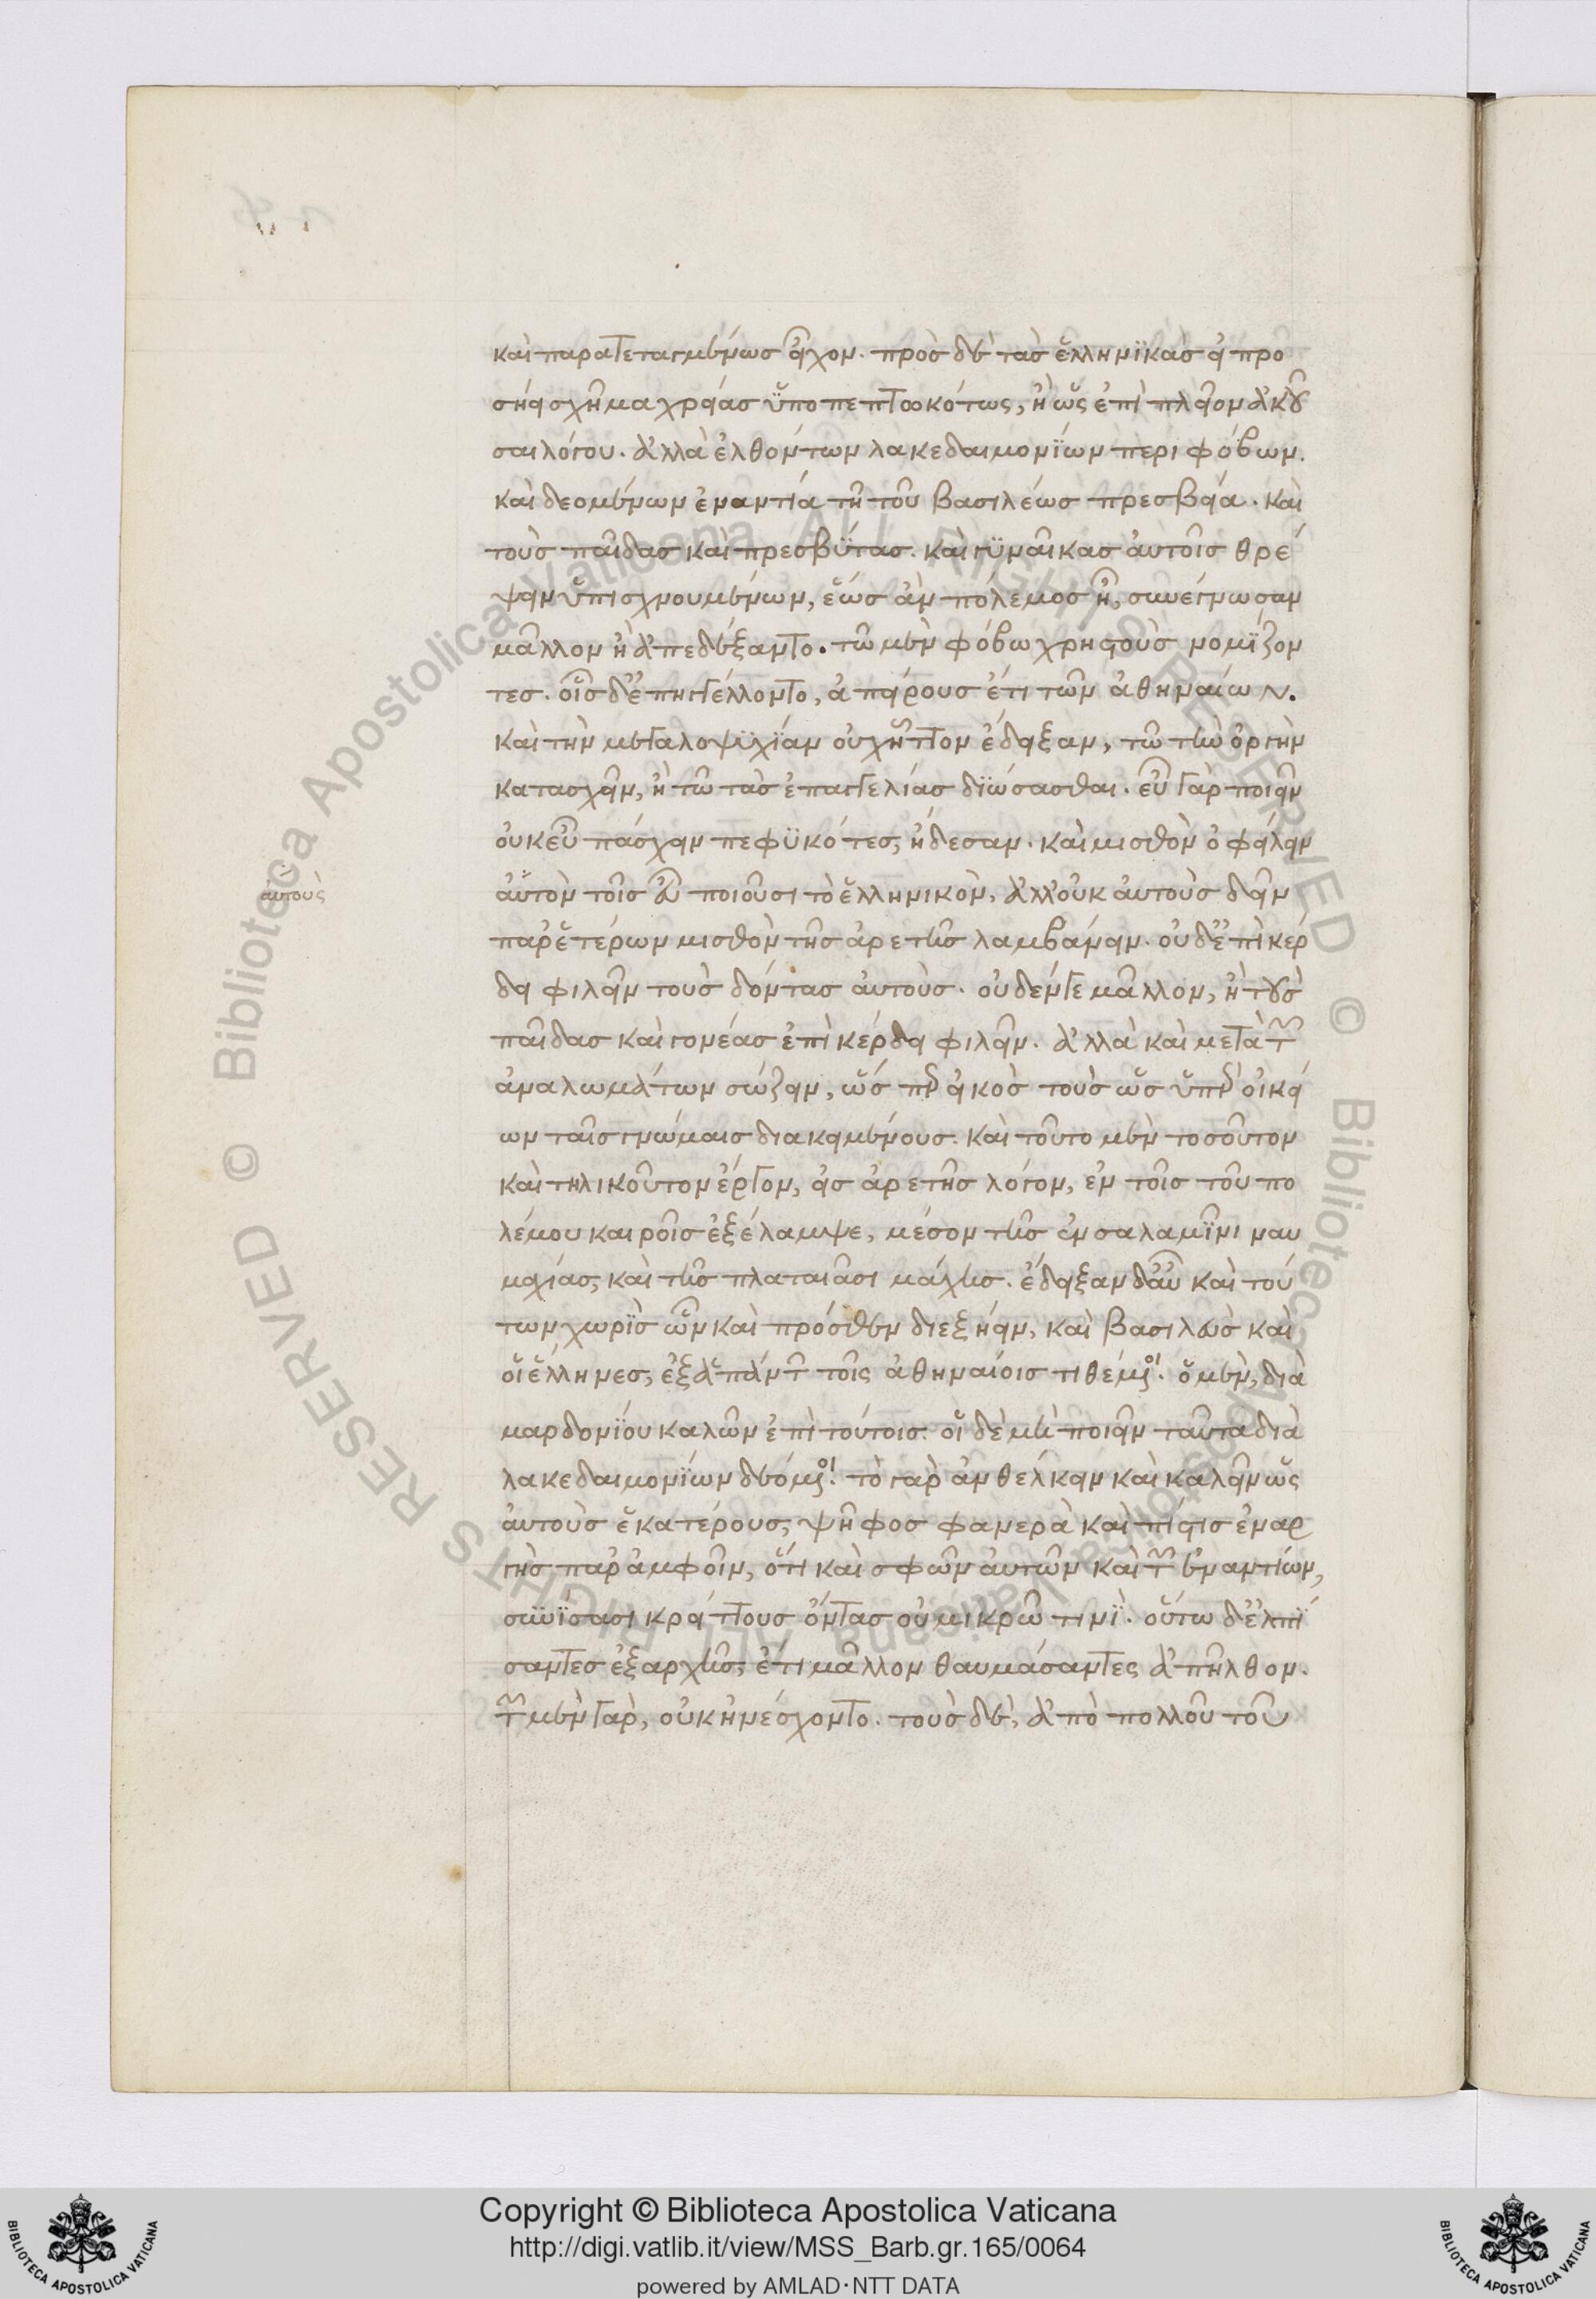 καὶ παρατεταγμένως εἶχον. πρὸς δὲ τὰς ἑλληνϊκὰς εἰ προ
σήει σχῆμα χρείας ὕποπεπτωκότως, ἢ ὡς ἐπὶ πλεῖον ἀκοῦ
σαι λόγου. ἀλλὰ ἐλθόντων λακεδαιμονΐων περιφόβων.
καὶ δεομένων ἐναντία τῆ τοῦ βασιλέως πρεσβεία. καὶ
τοὺς παῖδας καὶ πρεσβΰτας. καὶ γϋναῖκας ἀυτοῖς θρέ
ψειν ὑπισχνουμένων, ἕως ἂν πόλεμος ἦ, συνέγνωσαν
μᾶλλον ἢ ἀπεδέξαντο. τῶ μὲν φόβω χρηστοὺς νομΐζον
τες. οἷς δ' ἐπηγγέλλοντο, ἀπείρους ἔτι τῶν ἀθηναίων.
καὶ τὴν μεγαλοψϋχΐαν οὐχ ἧττον ἔδειξαν, τῶ τὴν ὀργὴν
κατασχεῖν, ἢ τῶ τὰς ἐπαγγελίας δϊώσασθαι. εὖ γὰρ ποιεῖν
οὐκ εὖ πάσχειν πεφϋκότες, ἤδεσαν. καὶ μισθὸν ὀφείλειν
ἁυτὸν τοῖς εὖ ποιοῦσι τὸ ἑλληνικὸν, ἀλλ' οὐκ ἀυτοὺς δεῖν
ἀυτοὺς
παρ' ἑτέρων μισθὸν τῆς ἀρετῆς λαμβάνειν. οὐδ' ἐπὶ κέρ
δει φιλεῖν τοὺς δόντας ἀυτοὺς. οὐδέν γε μᾶλλον, ἢ τοὺς
παῖδας καὶ γονέας ἐπὶ κέρδει φιλεῖν. ἀλλὰ καὶ μετὰ τῶν
ἀναλωμάτων σώζειν, ὥσπερ εἰκὸς τοὺς ὡς ὑπὲρ οἰκεί
ων ταῖς γνώμαις διακειμένους. καὶ τοῦτο μὲν τοσοῦτον
καὶ τηλικοῦτον ἔργον, εἰς ἀρετῆς λόγον, ἐν τοῖς τοῦ πο
λέμου καιροῖς ἐξέλαμψε, μέσον τῆς ἐν σαλαμῖνι ναυ
μαχίας, καὶ τῆς πλαταιᾶσι μάχης. ἔδειξαν δ' ἂυ καὶ τού
των χωρὶς ὧν καὶ πρόσθεν διεξήειν, καὶ βασιλεὺς καὶ
οἱ ἕλληνες, ἐξ ἅπάντων τοῖς ἀθηναίοις τιθέμενοι. ὁ μὲν, διὰ
μαρδονΐου καλῶν ἐπὶ τούτοις. οἱ δὲ μὴ ποιεῖν ταῦτα διὰ
λακεδαιμονΐων δεόμενοι. τὸ γὰρ ἀνθέλκειν καὶ καλεῖν ὡς
ἀυτοὺς ἑκατέρους, ψῆφος φανερὰ καὶ πίστις ἐναρ
γὴς παρ' ἀμφοῖν, ὅτι καὶ σφῶν ἀυτῶν καὶ τῶν ἐναντίων,
συνΐσασι κρείττους ὄντας οὐ μικρῶ τινΐ. οὕτω δ' ἐλπΐ
σαντες ἐξαρχῆς, ἔτι μᾶλλον θαυμάσαντες ἀπῆλθον.
τῶν μὲν γὰρ, οὐκ ἠνέσχοντο. τοὺς δὲ, ἀπὸ πολλοῦ τοῦ
Copyright © Biblioteca Apostolica Vaticana
http://digi.vatlib.it/view/MSS_Barb.gr.165/0064
powered by AMLAD·NTT DATA